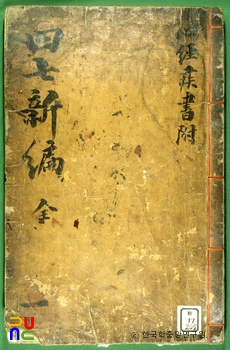 心經疾書附
四七新編 全
一
ⓒ 한국학중앙연구원